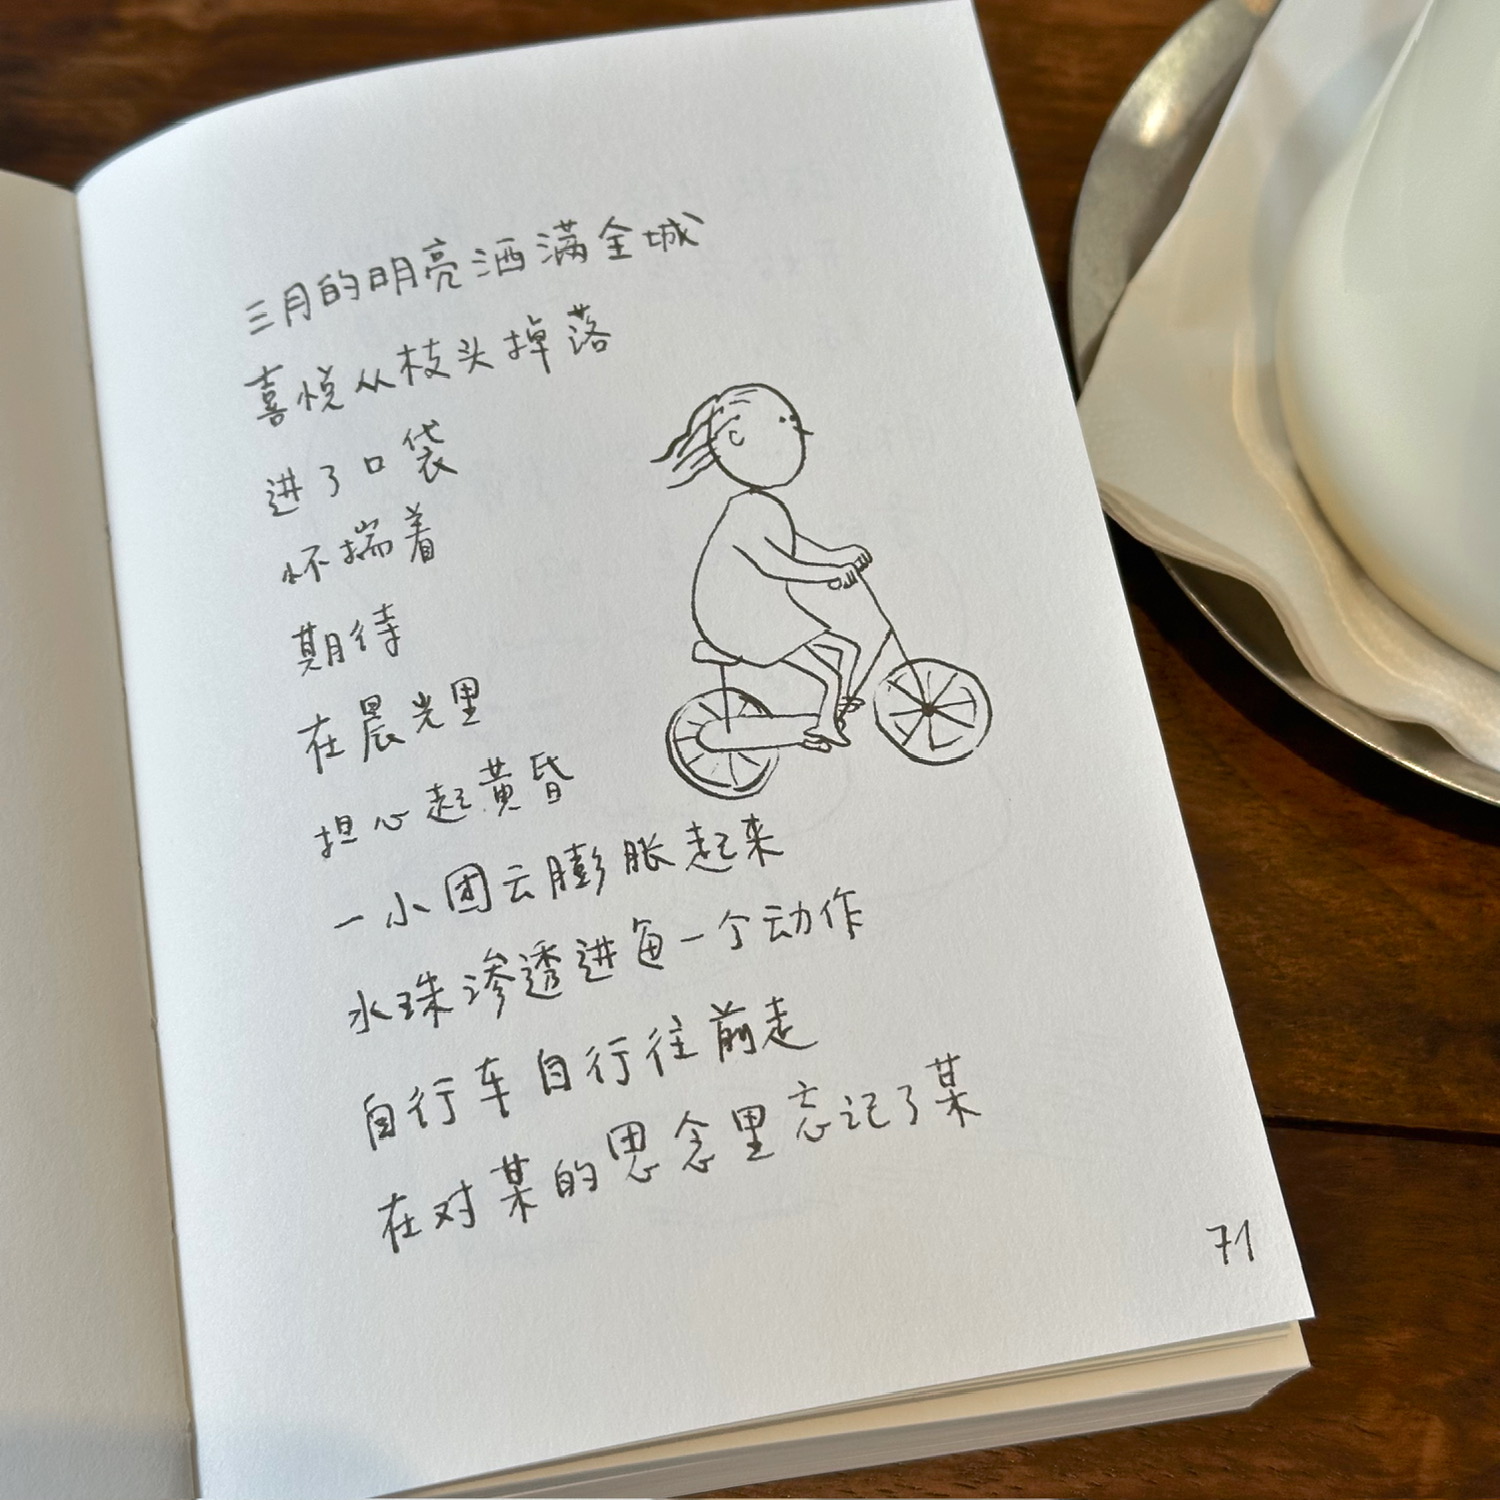 三月的明亮洒满全城
喜悦从枝头掉落
进了口袋
怀揣着
期待
在晨光里
担心起黄昏
一小团云膨胀起来
水珠渗透进每一个动作
自行车自行往前走
在对某的思念里忘记了某
71